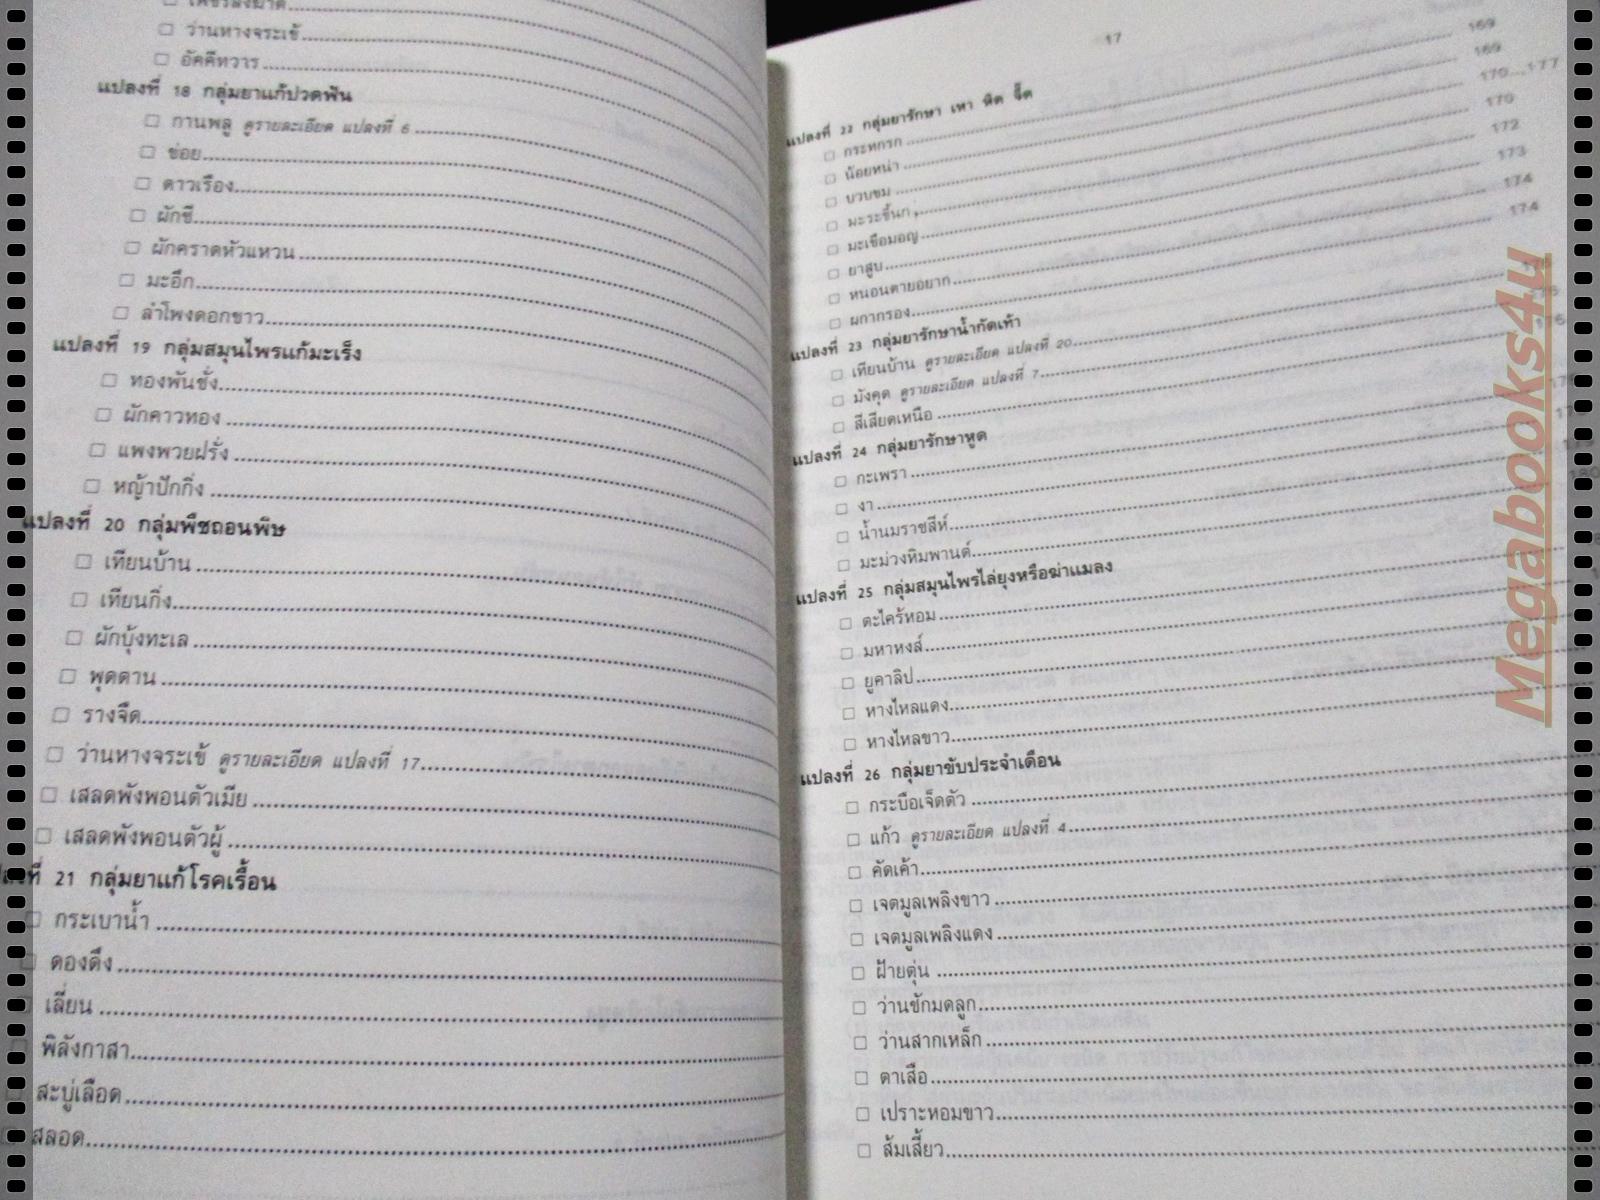 ว่านหางจระเข้
อัคคีทวาร
แปลงที่ 18 กลุ่มยาแก้ปวดฟัน
กานพลู ดูรายละเอียด แปลงที่ 6
ข่อย
ดาวเรือง
ผักชี
ผักคราดหัวแหวน
มะอึก
ลำโพงดอกขาว
แปลงที่ 19 กลุ่มสมุนไพรแก้มะเร็ง
ทองพันชั่ง
ผักคาวทอง
แพงพวยฝรั่ง
หญ้าปักกิ่ง
แปลงที่ 20 กลุ่มพืชถอนพิษ
เทียนบ้าน
เทียนกิ่ง
ผักบุ้งทะเล
พุดตาน
รางจืด
ว่านหางจระเข้ ดูรายละเอียด แปลงที่ 17
เสลดพังพอนตัวเมีย
เสลดพังพอนตัวผู้
21 กลุ่มยาแก้โรคเรื้อน
กระเบาน้ำ
ดองดึง
เลี่ยน
พิลังกาสา
สะบู่เลือด
สลอด
17
แปลงที่ 22 กลุ่มยารักษา เหา หิด จี๊ด
กระทกรก 169
น้อยหน่า 169
บวบขม 170...177
มะระขี้นก 170
มะเขือมอญ 172
ยาสูบ 173
หนอนตายอยาก 174
ผกากรอง 174
แปลงที่ 23 กลุ่มยารักษาน้ำกัดเท้า
เทียนบ้าน ดูรายละเอียด แปลงที่ 20
มังคุด ดูรายละเอียด แปลงที่ 7
สีเสียดเหนือ
แปลงที่ 24 กลุ่มยารักษาหูด
กะเพรา
งา
น้ำนมราชสีห์
มะม่วงหิมพานต์
แปลงที่ 25 กลุ่มสมุนไพรไล่ยุงหรือฆ่าแมลง
ตะไคร้หอม
มหาหงส์
ยูคาลิป
หางไหลแดง
หางไหลขาว
แปลงที่ 26 กลุ่มยาขับประจำเดือน
กระบือเจ็ดตัว
แก้ว ดูรายละเอียด แปลงที่ 4
คัดเค้า
เจตมูลเพลิงขาว
เจตมูลเพลิงแดง
ฝ้ายตุ่น
ว่านชักมดลูก
ว่านสากเหล็ก
ตาเสือ
เปราะหอมขาว
ส้มเสี้ยว
Megabooks4u